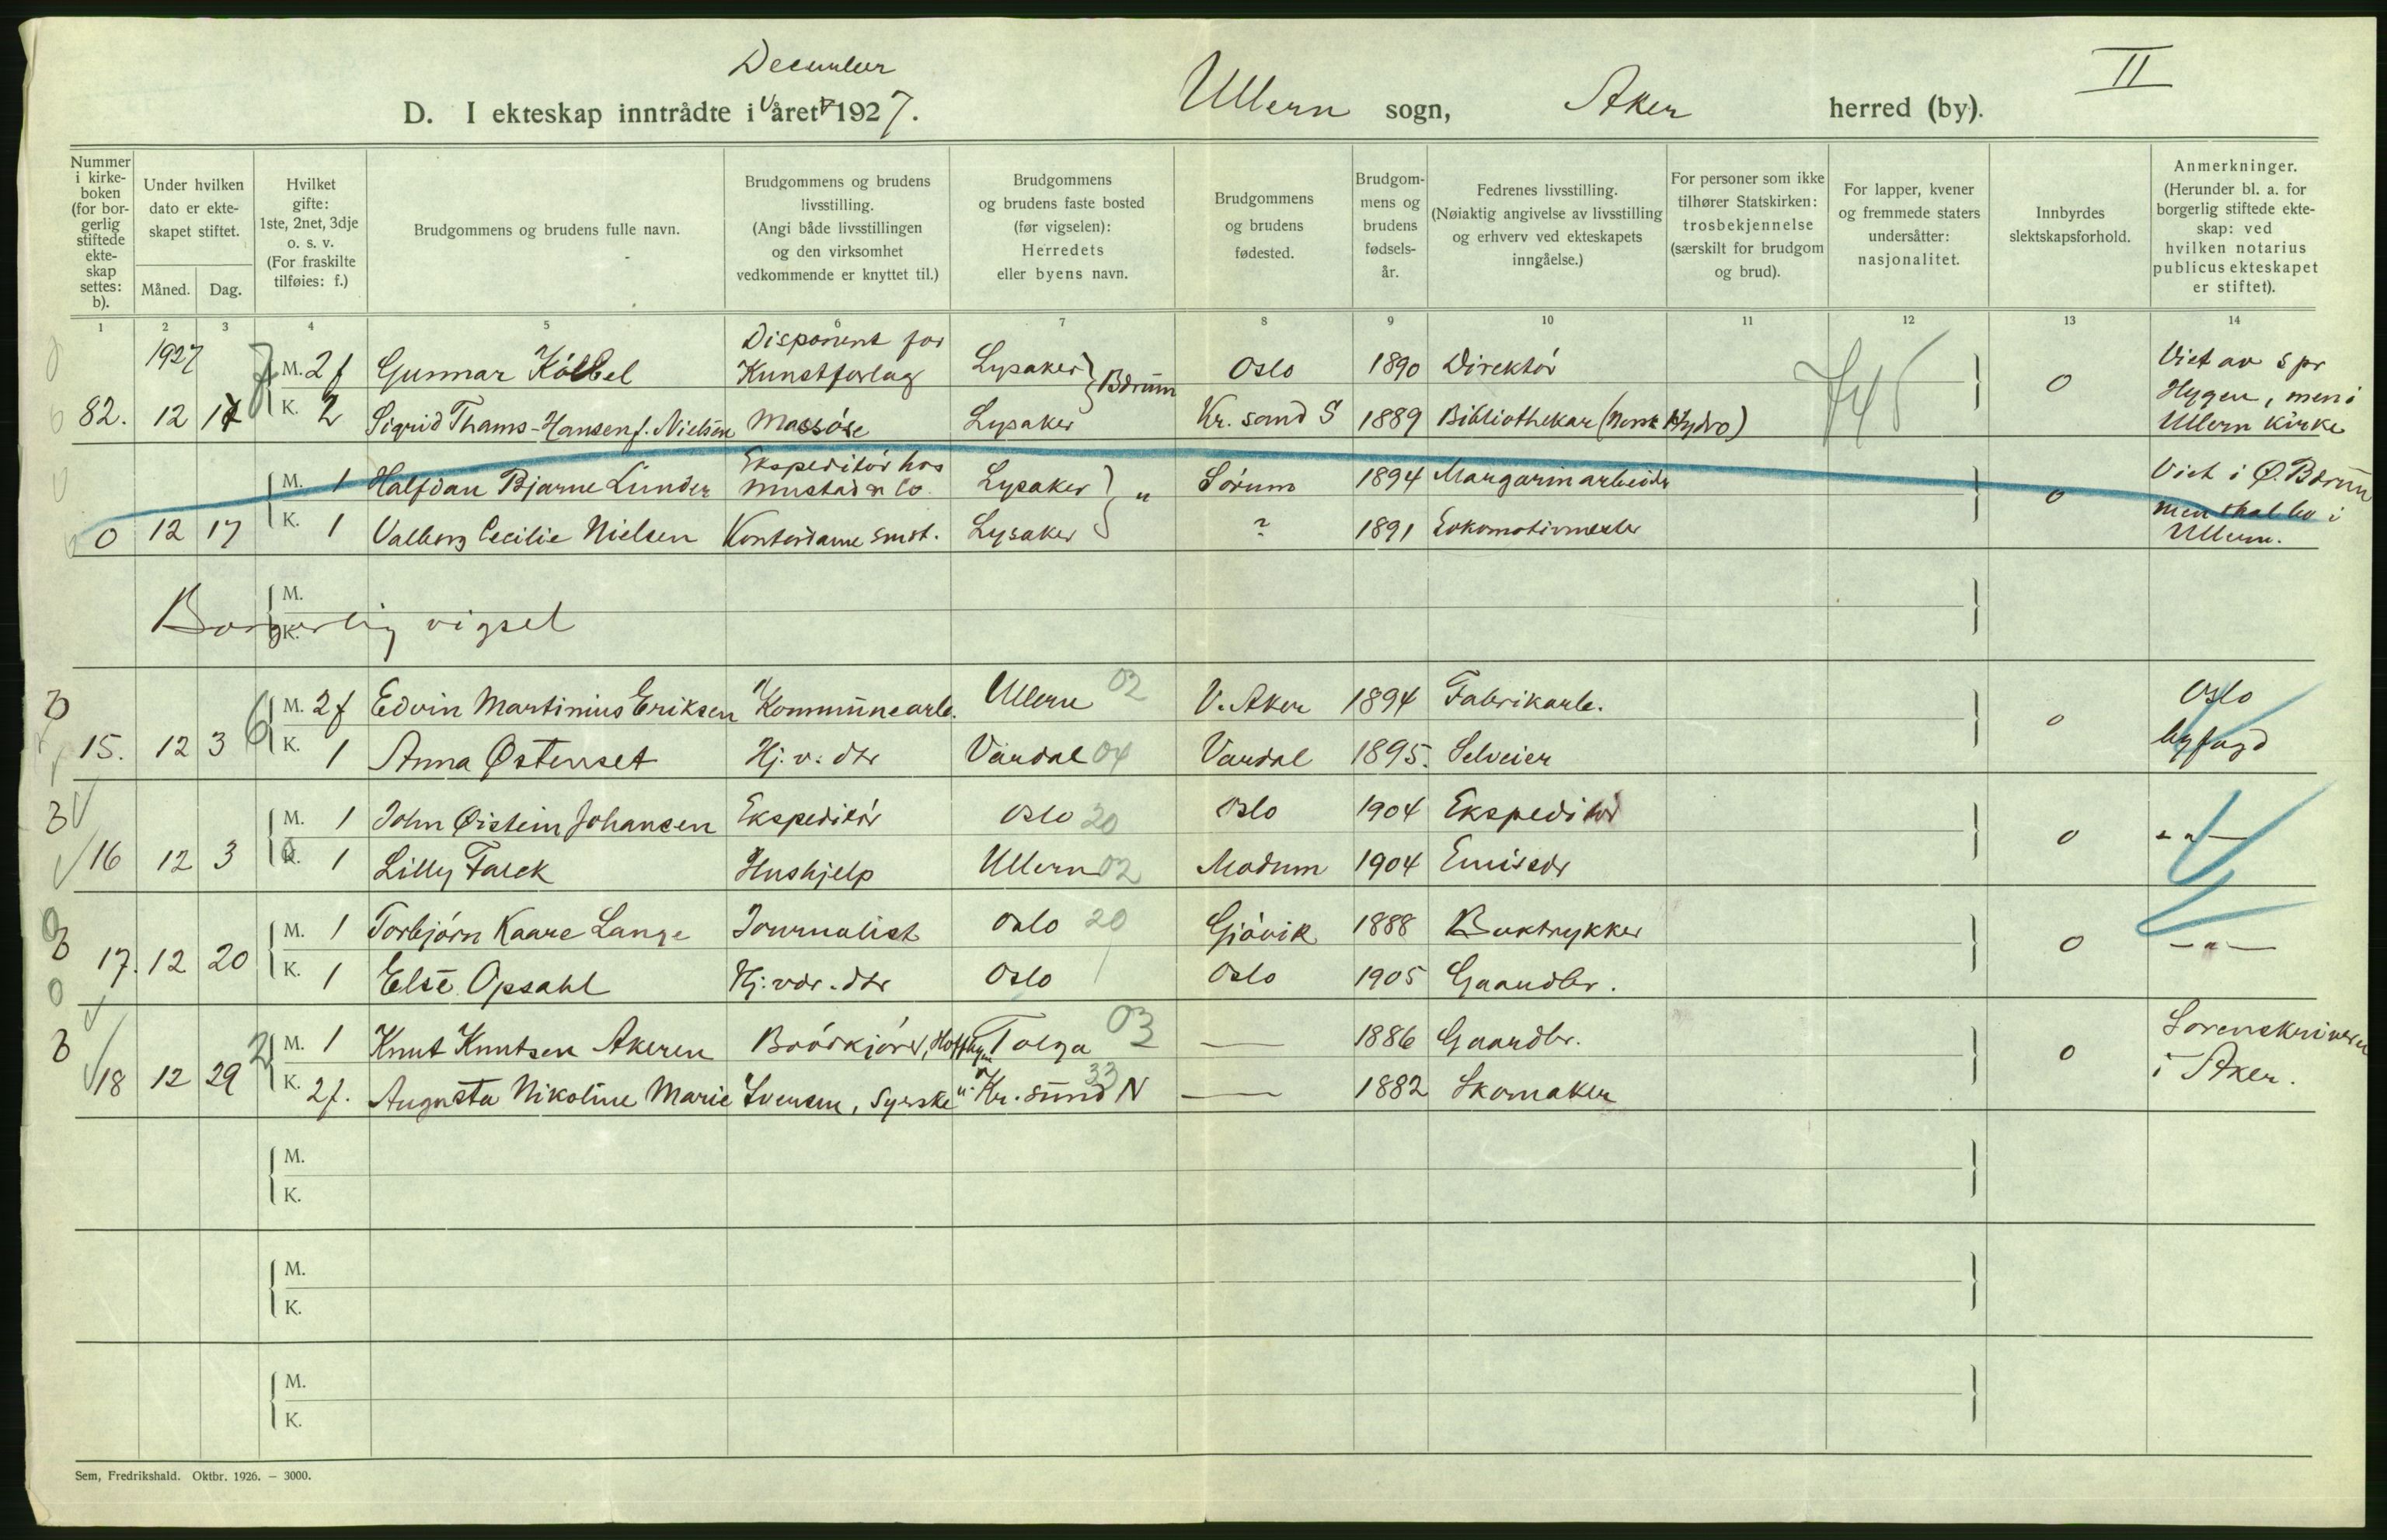 December
II
D. I ekteskap inntrådte i året 1927. Ullern sogn, Aker herred (by).
Nummer i kirke-boken (for bor-gerlig stiftede ekte-skap settes: b).
Under hvilken dato er ekte-skapet stiftet.
Måned. Dag.
Hvilket gifte: 1ste, 2net, 3dje o. s. v. (For fraskilte tilføies: f.)
Brudgommens og brudens fulle navn.
Brudgommens og brudens livsstilling. (Angi både livsstillingen og den virksomhet vedkommende er knyttet til.)
Brudgommens og brudens faste bosted (før vigselen): Herredets eller byens navn.
Brudgommens og brudens fødested.
Brudgom-mens og brudens fødsels-år.
Fedrenes livsstilling. (Nøiaktig angivelse av livsstilling og erhverv ved ekteskapets inngåelse.)
For personer som ikke tilhører Statskirken: trosbekjennelse (særskilt for brudgom og brud).
For lapper, kvener og fremmede staters undersåtter: nasjonalitet.
Innbyrdes slektskapsforhold.
Anmerkninger. (Herunder bl. a. for borgerlig stiftede ekte-skap: ved hvilken notarius publicus ekteskapet er stiftet).
1 2 3 4 5 6 7 8 9 10 11 12 13 14
1927 M. 2 f Gunnar Kölbel Disponent for Kunstforlag Lysaker } Bærum Oslo 1890 Direktör 0 Viet av s pr
82. 12 17 K. 2 Sigrid Thams-Hansen f. Nielsen Massöse Lysaker Kr. sand S 1889 Bibliothekar (Norsk Hydro) Hygen, men i Ullern kirke
M. 1 Halfdan Bjarne Lunder Ekspeditör hos Mustad & Co. Lysaker } " Sörum 1894 Margarinarbeider 0 Viet i Ø. Bærum
0 12 17 K. 1 Valborg Cecilie Nielsen Kontordame smst. Lysaker ? 1891 Lokomotivmester men skal bo i Ullern.
M.
Borgerlig vigsel
K.
B 6 M. 2 f Edvin Martinius Eriksen Kommunearb. Ullern 02 V. Aker 1894 Fabrikarb. 0 Oslo
15. 12 3 K. 1 Anna Østenset Hj. v. dtr Vardal 04 Vardal 1895. Selveier byfogd
B M. 1 John Øistein Johansen Ekspeditör Oslo 20 Oslo 1904 Ekspeditör 0 - " -
16 12 3 K. 1 Lilly Falck Hushjelp Ullern 02 Modum 1904 Emissær
B M. 1 Torbjörn Kaare Lange Journalist Oslo 20 Gjövik 1888 Boktrykker 0 - " -
17. 12 20 K. 1 Else Opsahl Hj. vær. dtr Oslo Oslo 1905 Gaardbr.
B 2 M. 1 Knut Knutsen Akeren Tolga 03 — 1886 Gaardbr. 0 Sorenskriveren
18 12 29 K. 2 f. Augusta Nikoline Marie Svensen, Syerske Kr. sund N 33 — 1882 Skomaker i Aker.
M.
K.
M.
K.
M.
K.
Sem, Fredrikshald. Oktbr. 1926. — 3000.